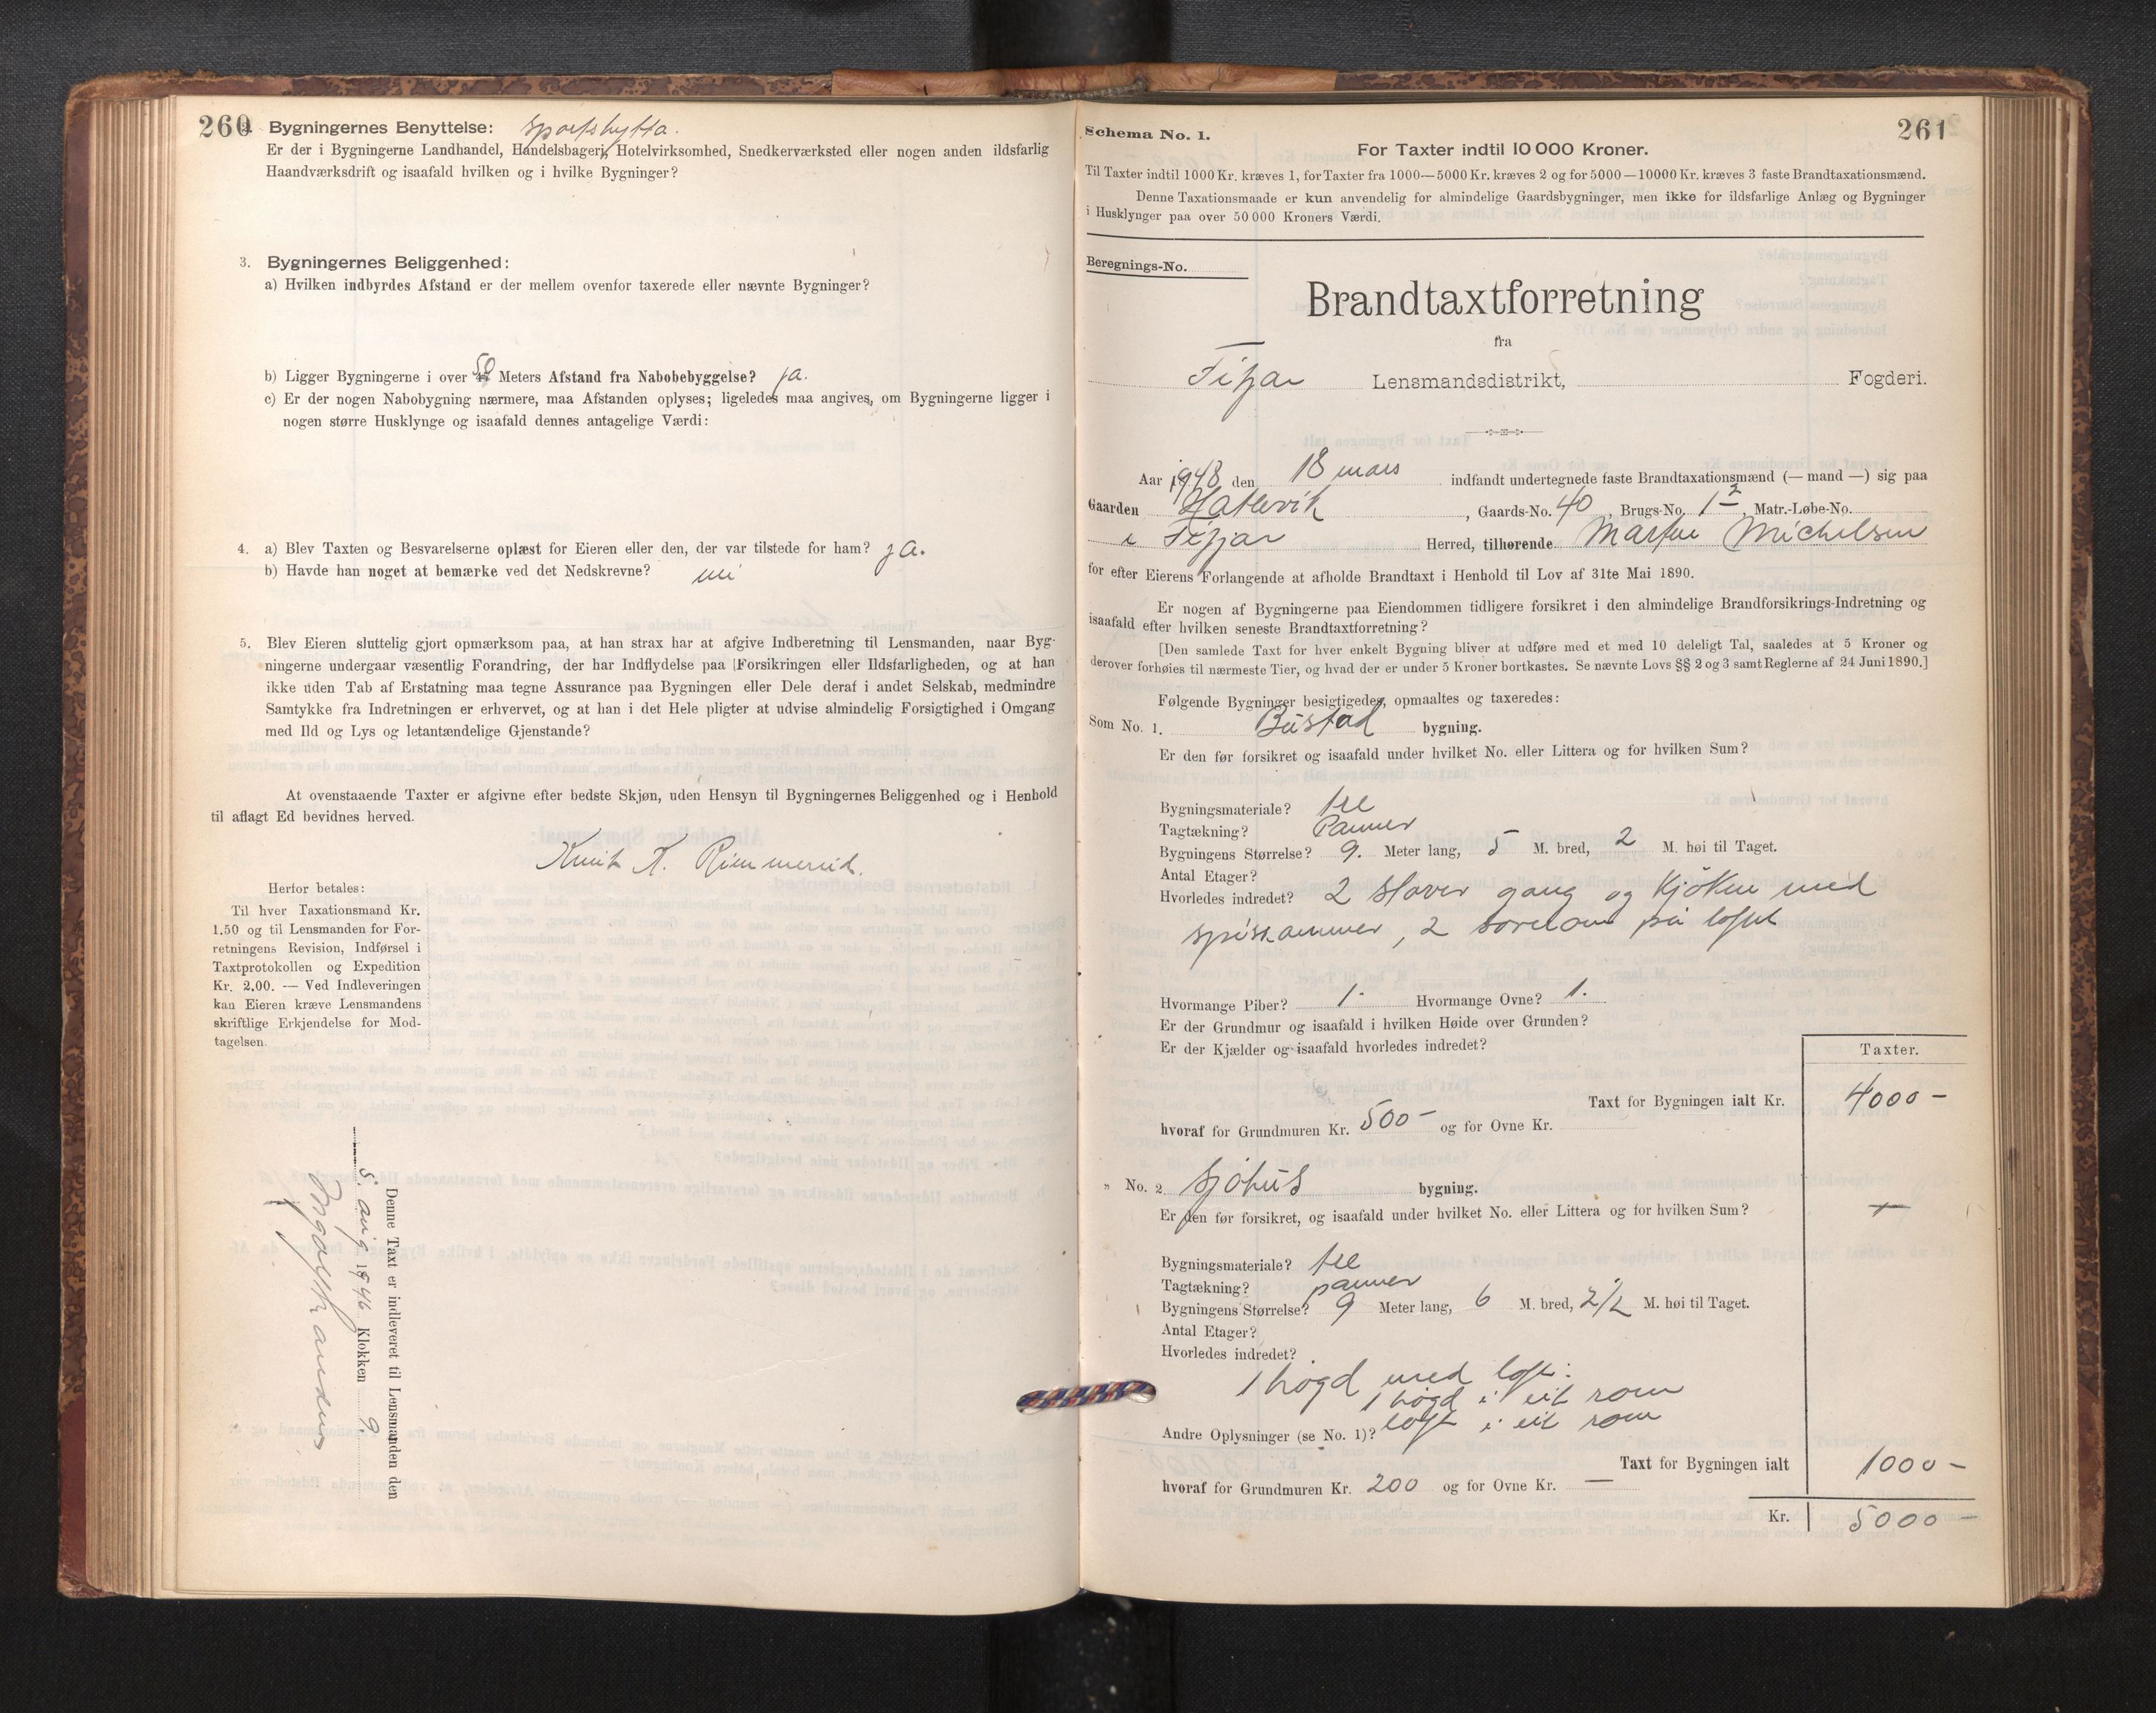 260
2. Bygningernes Benyttelse: Sportshytta.
Er der i Bygningerne Landhandel, Handelsbageri, Hotelvirksomhed, Snedkerværksted eller nogen anden ildsfarlig
Haandværksdrift og isaafald hvilken og i hvilke Bygninger?
3. Bygningernes Beliggenhed:
a) Hvilken indbyrdes Afstand er der mellem ovenfor taxerede eller nævnte Bygninger?
b) Ligger Bygningerne i over 50 Meters Afstand fra Nabobebyggelse? ja.
c) Er der nogen Nabobygning nærmere, maa Afstanden oplyses; ligeledes maa angives, om Bygningerne ligger i
nogen større Husklynge og isaafald dennes antagelige Værdi:
4. a) Blev Taxten og Besvarelserne oplæst for Eieren eller den, der var tilstede for ham? ja.
b) Havde han noget at bemærke ved det Nedskrevne? nei
5. Blev Eieren sluttelig gjort opmærksom paa, at han strax har at afgive Indberetning til Lensmanden, naar Byg-
ningerne undergaar væsentlig Forandring, der har Indflydelse paa Forsikringen eller Ildsfarligheden, og at han
ikke uden Tab af Erstatning maa tegne Assurance paa Bygningen eller Dele deraf i andet Selskab, medmindre
Samtykke fra Indretningen er erhvervet, og at han i det Hele pligter at udvise almindelig Forsigtighed i Omgang
med Ild og Lys og letantændelige Gjenstande?
At ovenstaaende Taxter er afgivne efter bedste Skjøn, uden Hensyn til Bygningernes Beliggenhed og i Henhold
til aflagt Ed bevidnes herved.
Knut K. Rimmereid.
Herfor betales:
Til hver Taxationsmand Kr.
1.50 og til Lensmanden for For-
retningens Revision, Indførsel i
Taxtprotokollen og Expedition
Kr. 2.00. — Ved Indleveringen
kan Eieren kræve Lensmandens
skriftlige Erkjendelse for Mod-
tagelsen.
Denne Taxt er indleveret til Lensmanden den
5. aug 1946 Klokken 9.
261
Schema No. 1.
For Taxter indtil 10 000 Kroner.
Til Taxter indtil 1000 Kr. kræves 1, for Taxter fra 1000—5000 Kr. kræves 2 og for 5000—10000 Kr. kræves 3 faste Brandtaxationsmænd.
Denne Taxationsmaade er kun anvendelig for almindelige Gaardsbygninger, men ikke for ildsfarlige Anlæg og Bygninger
i Husklynger paa over 50 000 Kroners Værdi.
Beregnings-No.
Brandtaxtforretning
fra
Fitjar Lensmandsdistrikt, Fogderi.
Aar 1948 den 18 mars indfandt undertegnede faste Brandtaxationsmænd (— mand —) sig paa
Gaarden Hatlevik, Gaards-No. 40, Brugs-No. 1², Matr.-Løbe-No.
i Fitjar Herred, tilhørende Martin Michelsen
for efter Eierens Forlangende at afholde Brandtaxt i Henhold til Lov af 31te Mai 1890.
Er nogen af Bygningerne paa Eiendommen tidligere forsikret i den almindelige Brandforsikrings-Indretning og
isaafald efter hvilken seneste Brandtaxtforretning?
[Den samlede Taxt for hver enkelt Bygning bliver at udføre med et med 10 deleligt Tal, saaledes at 5 Kroner og
derover forhøies til nærmeste Tier, og hvad der er under 5 Kroner bortkastes. Se nævnte Lovs §§ 2 og 3 samt Reglerne af 24 Juni 1890.]
Følgende Bygninger besigtigedes, opmaaltes og taxeredes:
Som No. 1. Bustad bygning.
Er den før forsikret og isaafald under hvilket No. eller Littera og for hvilken Sum?
Bygningsmateriale? tre
Tagtækning? Panner
Bygningens Størrelse? 9. Meter lang, 5 M. bred, 2 M. høi til Taget.
Antal Etager?
Hvorledes indredet? 2 stover gang og kjøken med
spiskammer, 2 soverom på loftet
Hvormange Piber? 1. Hvormange Ovne? 1.
Er der Grundmur og isaafald i hvilken Høide over Grunden?
Er der Kjælder og isaafald hvorledes indredet?
Taxter.
Taxt for Bygningen ialt Kr. 4000 –
hvoraf for Grundmuren Kr. 500 – og for Ovne Kr.
" No. 2 Sjøhus bygning.
Er den før forsikret, og isaafald under hvilket No. eller Littera og for hvilken Sum?
Bygningsmateriale? tre
Tagtækning? panner
Bygningens Størrelse? 9 Meter lang, 6 M. bred, 2½ M. høi til Taget.
Antal Etager?
Hvorledes indredet?
1 høgd med loft:
1 høgd i eit rom
Andre Oplysninger (se No. 1)? loft i eit rom
Taxt for Bygningen ialt 1000 –
hvoraf for Grundmuren Kr. 200 og for Ovne Kr. —
Kr. 5000 –